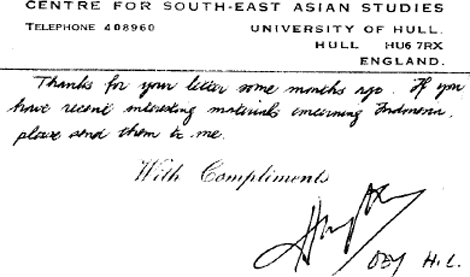 CENTRE FOR SOUTH-EAST ASIAN STUDIES
TELEPHONE 408960 UNIVERSITY OF HULL.
HULL HU6 7RX
ENGLAND.
Thanks for your letter some months ago. If you
have recent interesting materials concerning Indonesia,
please send them to me.
With Compliments
OEY H.L.